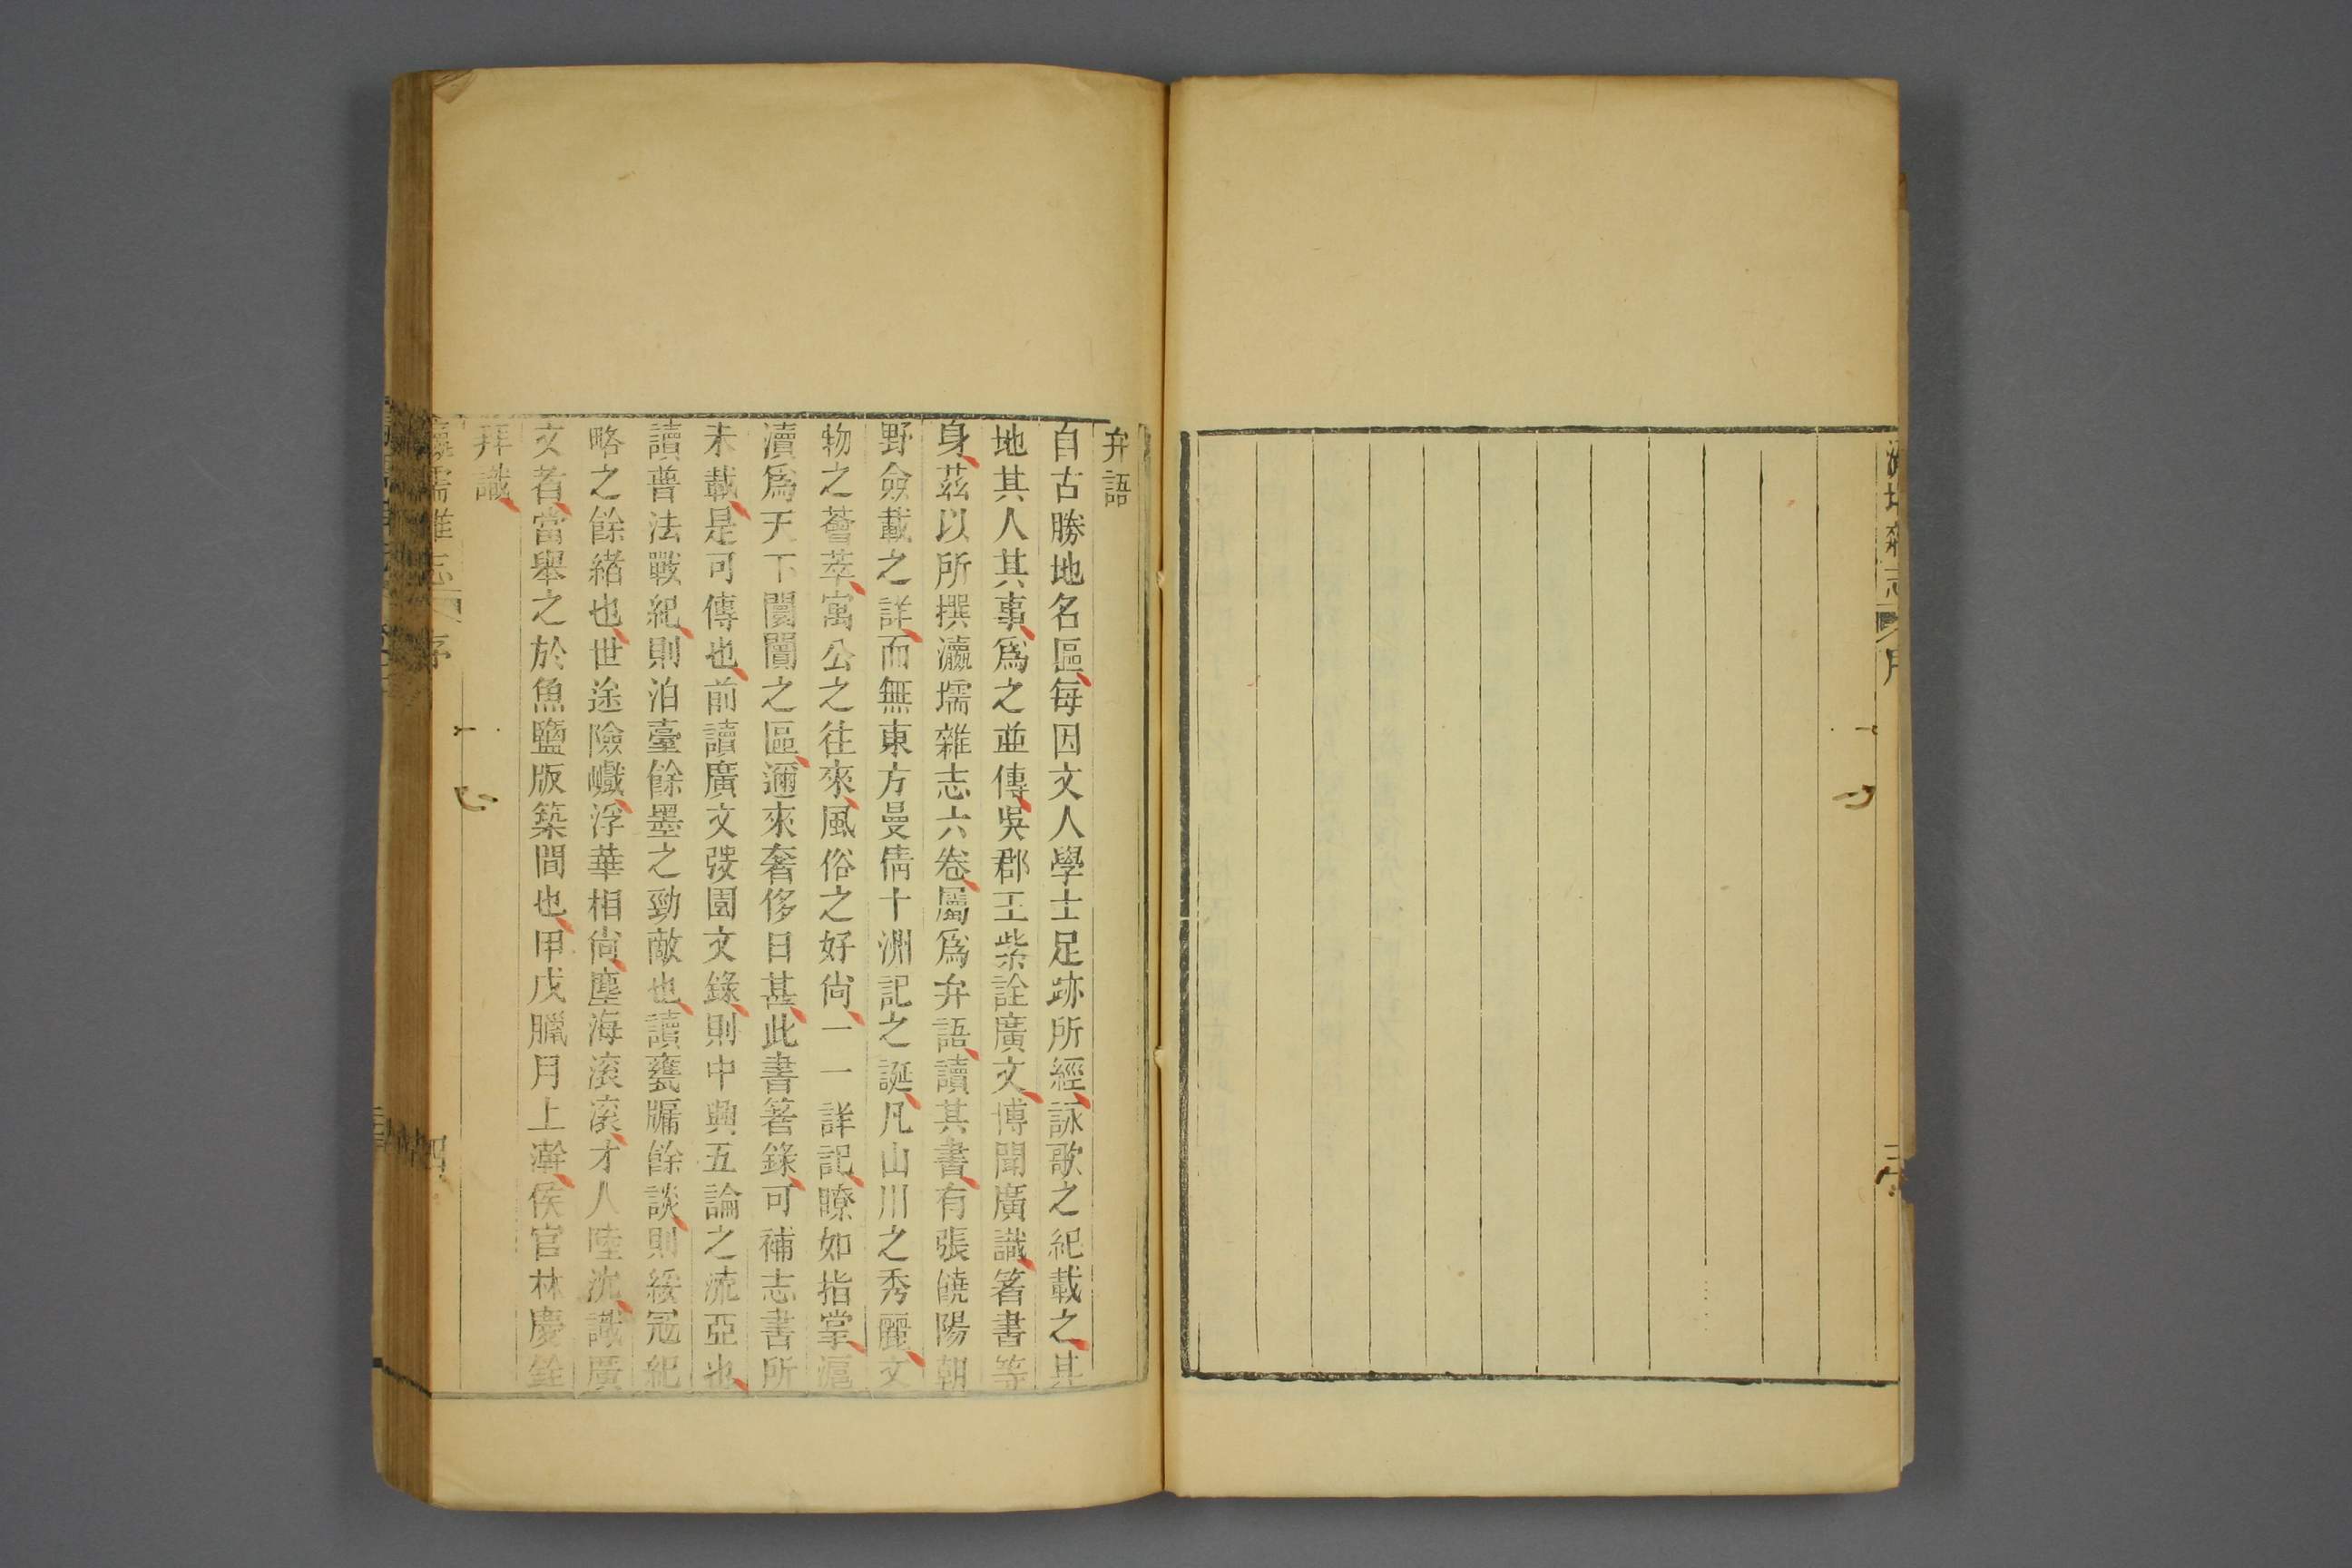 弁語
自古勝地名區每因文人學士足跡所經詠歌之紀載之其
地其人其事爲之並傳吳郡王柴詮廣文博聞廣識箸書等
身茲以所撰瀛壖雜志六卷屬爲弁語讀其書有張饒陽朝
野僉載之詳而無東方曼倩十洲記之誕凡山川之秀麗文
物之薈萃寓公之往來風俗之好尚一一詳記瞭如指掌滬
瀆爲天下闤闠之區邇來奢侈日甚此書箸錄可補志書所
未載是可傳也前讀廣文弢園文錄則中興五論之流亞也
讀普法戰紀則泊臺餘墨之勁敵也讀甕牖餘談則綏冦紀
略之餘緒也世途險巇浮華相尚塵海滾滾才人陸沈識廣
文者當舉之於魚鹽版築間也甲戌臘月上澣侯官林慶銓
拜識
瀛壖雜志 序 四